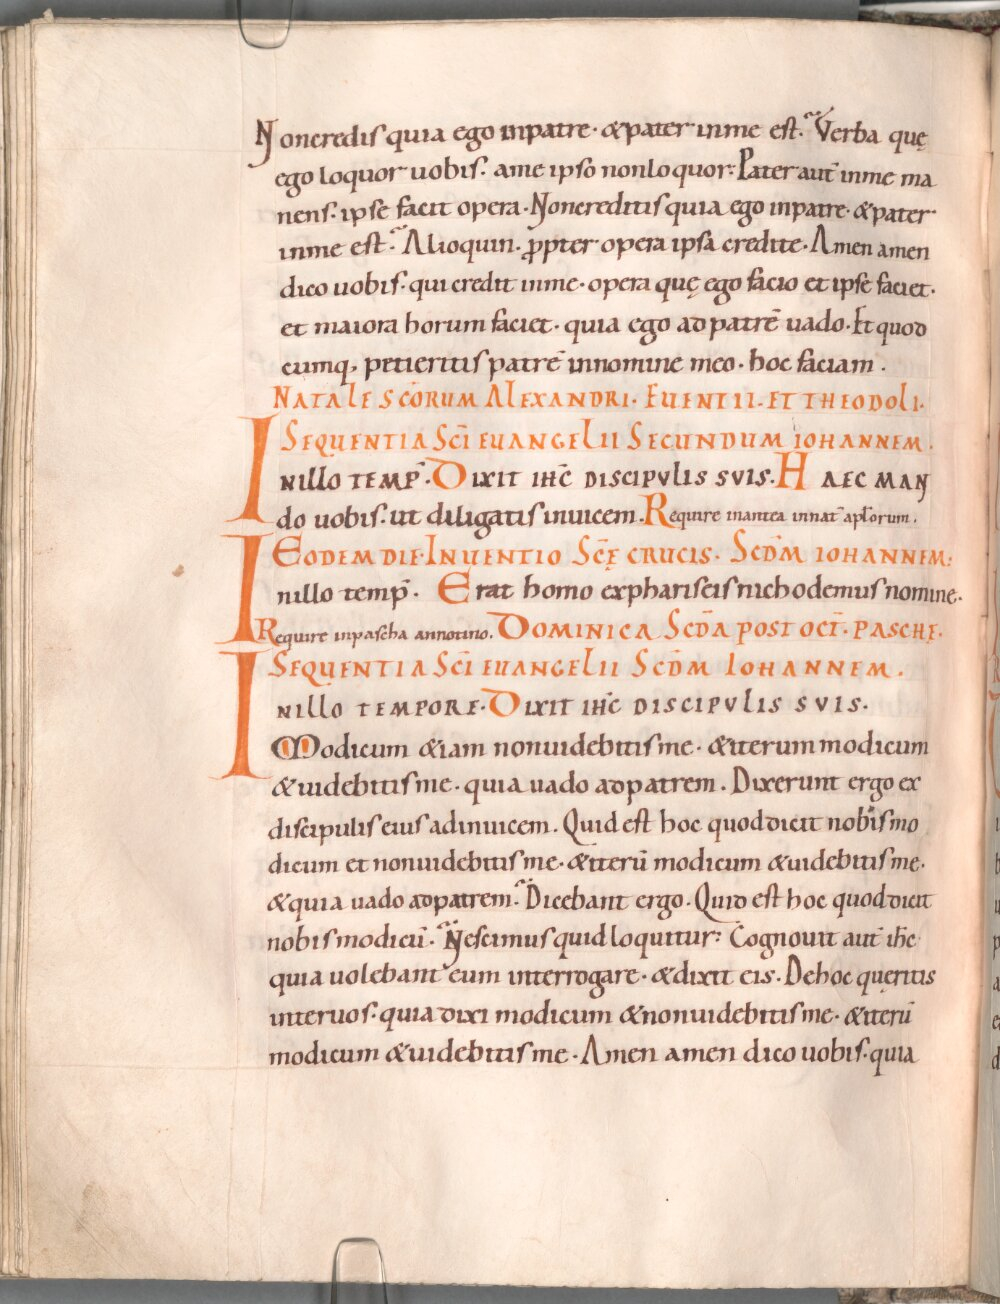 Non credis quia ego inpatre· & pater inme est. Verba quę
ego loquor uobis· ame ipso nonloquor· Pater aut̄ inme ma
nens· ipse facit opera· Noncreditis quia ego inpatre· & pater
inme est. Alioquin· ꝓpter opera ipsa credite· Amen amen
dico uobis· qui credit inme· opera quę ego facio et ipse faciet·
et maiora horum faciet· quia ego ad patrē uado· Et quod
cumq, petieritis patrē innomine meo· hoc faciam·
NATALE SC̄ORUM ALEXANDRI· EUENTII· ET THEODOLI·
SEQUENTIA SC̄I EUANGELII SECUNDUM IOHANNEM·
INILLO TEMP̄· DIXIT IHC̄ DISCIPULIS SUIS· HAEC MAN
do uobis· ut diligatis inuicem· Require inantea innat̄ apl̄orum·
EODEM DIE· INUENTIO SC̄Ę CRUCIS· SCD̄M IOHANNEM·
Inillo temp̄· Erat homo exphariseis nichodemus nomine·
Require inpascha annotino. DOMINICA SCD̄A POST OCT̄· PASCHĘ·
SEQUENTIA SC̄I EUANGELII SCD̄M IOHANNEM·
INILLO TEMPORE· DIXIT IHC̄ DISCIPULIS SUIS·
Modicum & iam nonuidebitis me· & iterum modicum
& uidebitis me· quia uado adpatrem· Dixerunt ergo ex
discipulis eius adinuicem· Quid est hoc quod dicit nobis mo
dicum et nonuidebitis me· & iterū modicum & uidebitis me·
& quia uado adpatrem· Dicebant ergo· Quid est hoc quod dicit
nobis modicū· Nescimus quid loquitur· Cognouit aut̄ ihc̄
quia uolebant eum interrogare· & dixit eis· Dehoc quęritis
interuos· quia dixi modicum & nonuidebitis me· & iterū
modicum & uidebitis me· Amen amen dico uobis· quia